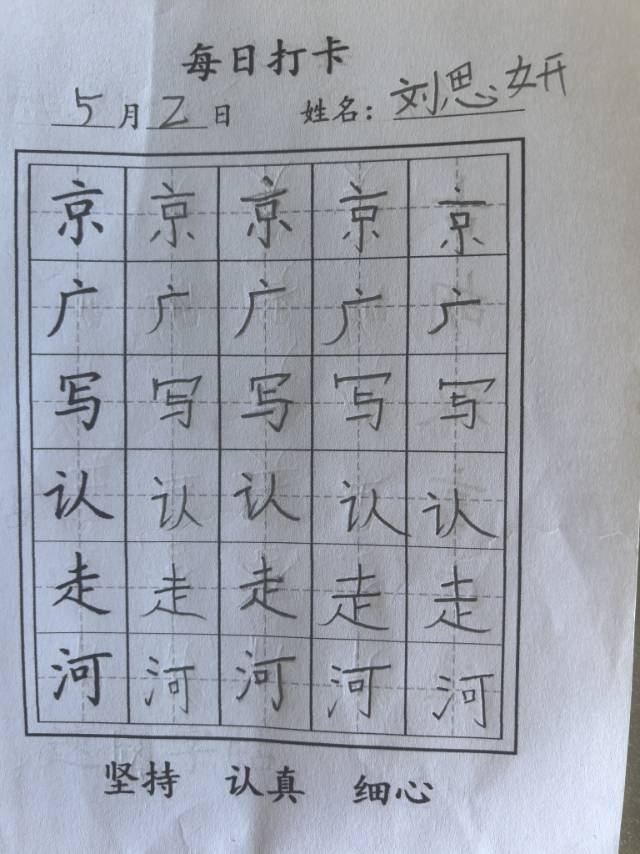 每日打卡
5月2日 姓名：刘思妍
京 京 京 京 京
广 广 广 广 广
写 写 写 写 写
认 认 认 认 认
走 走 走 走 走
河 河 河 河 河
坚持 认真 细心